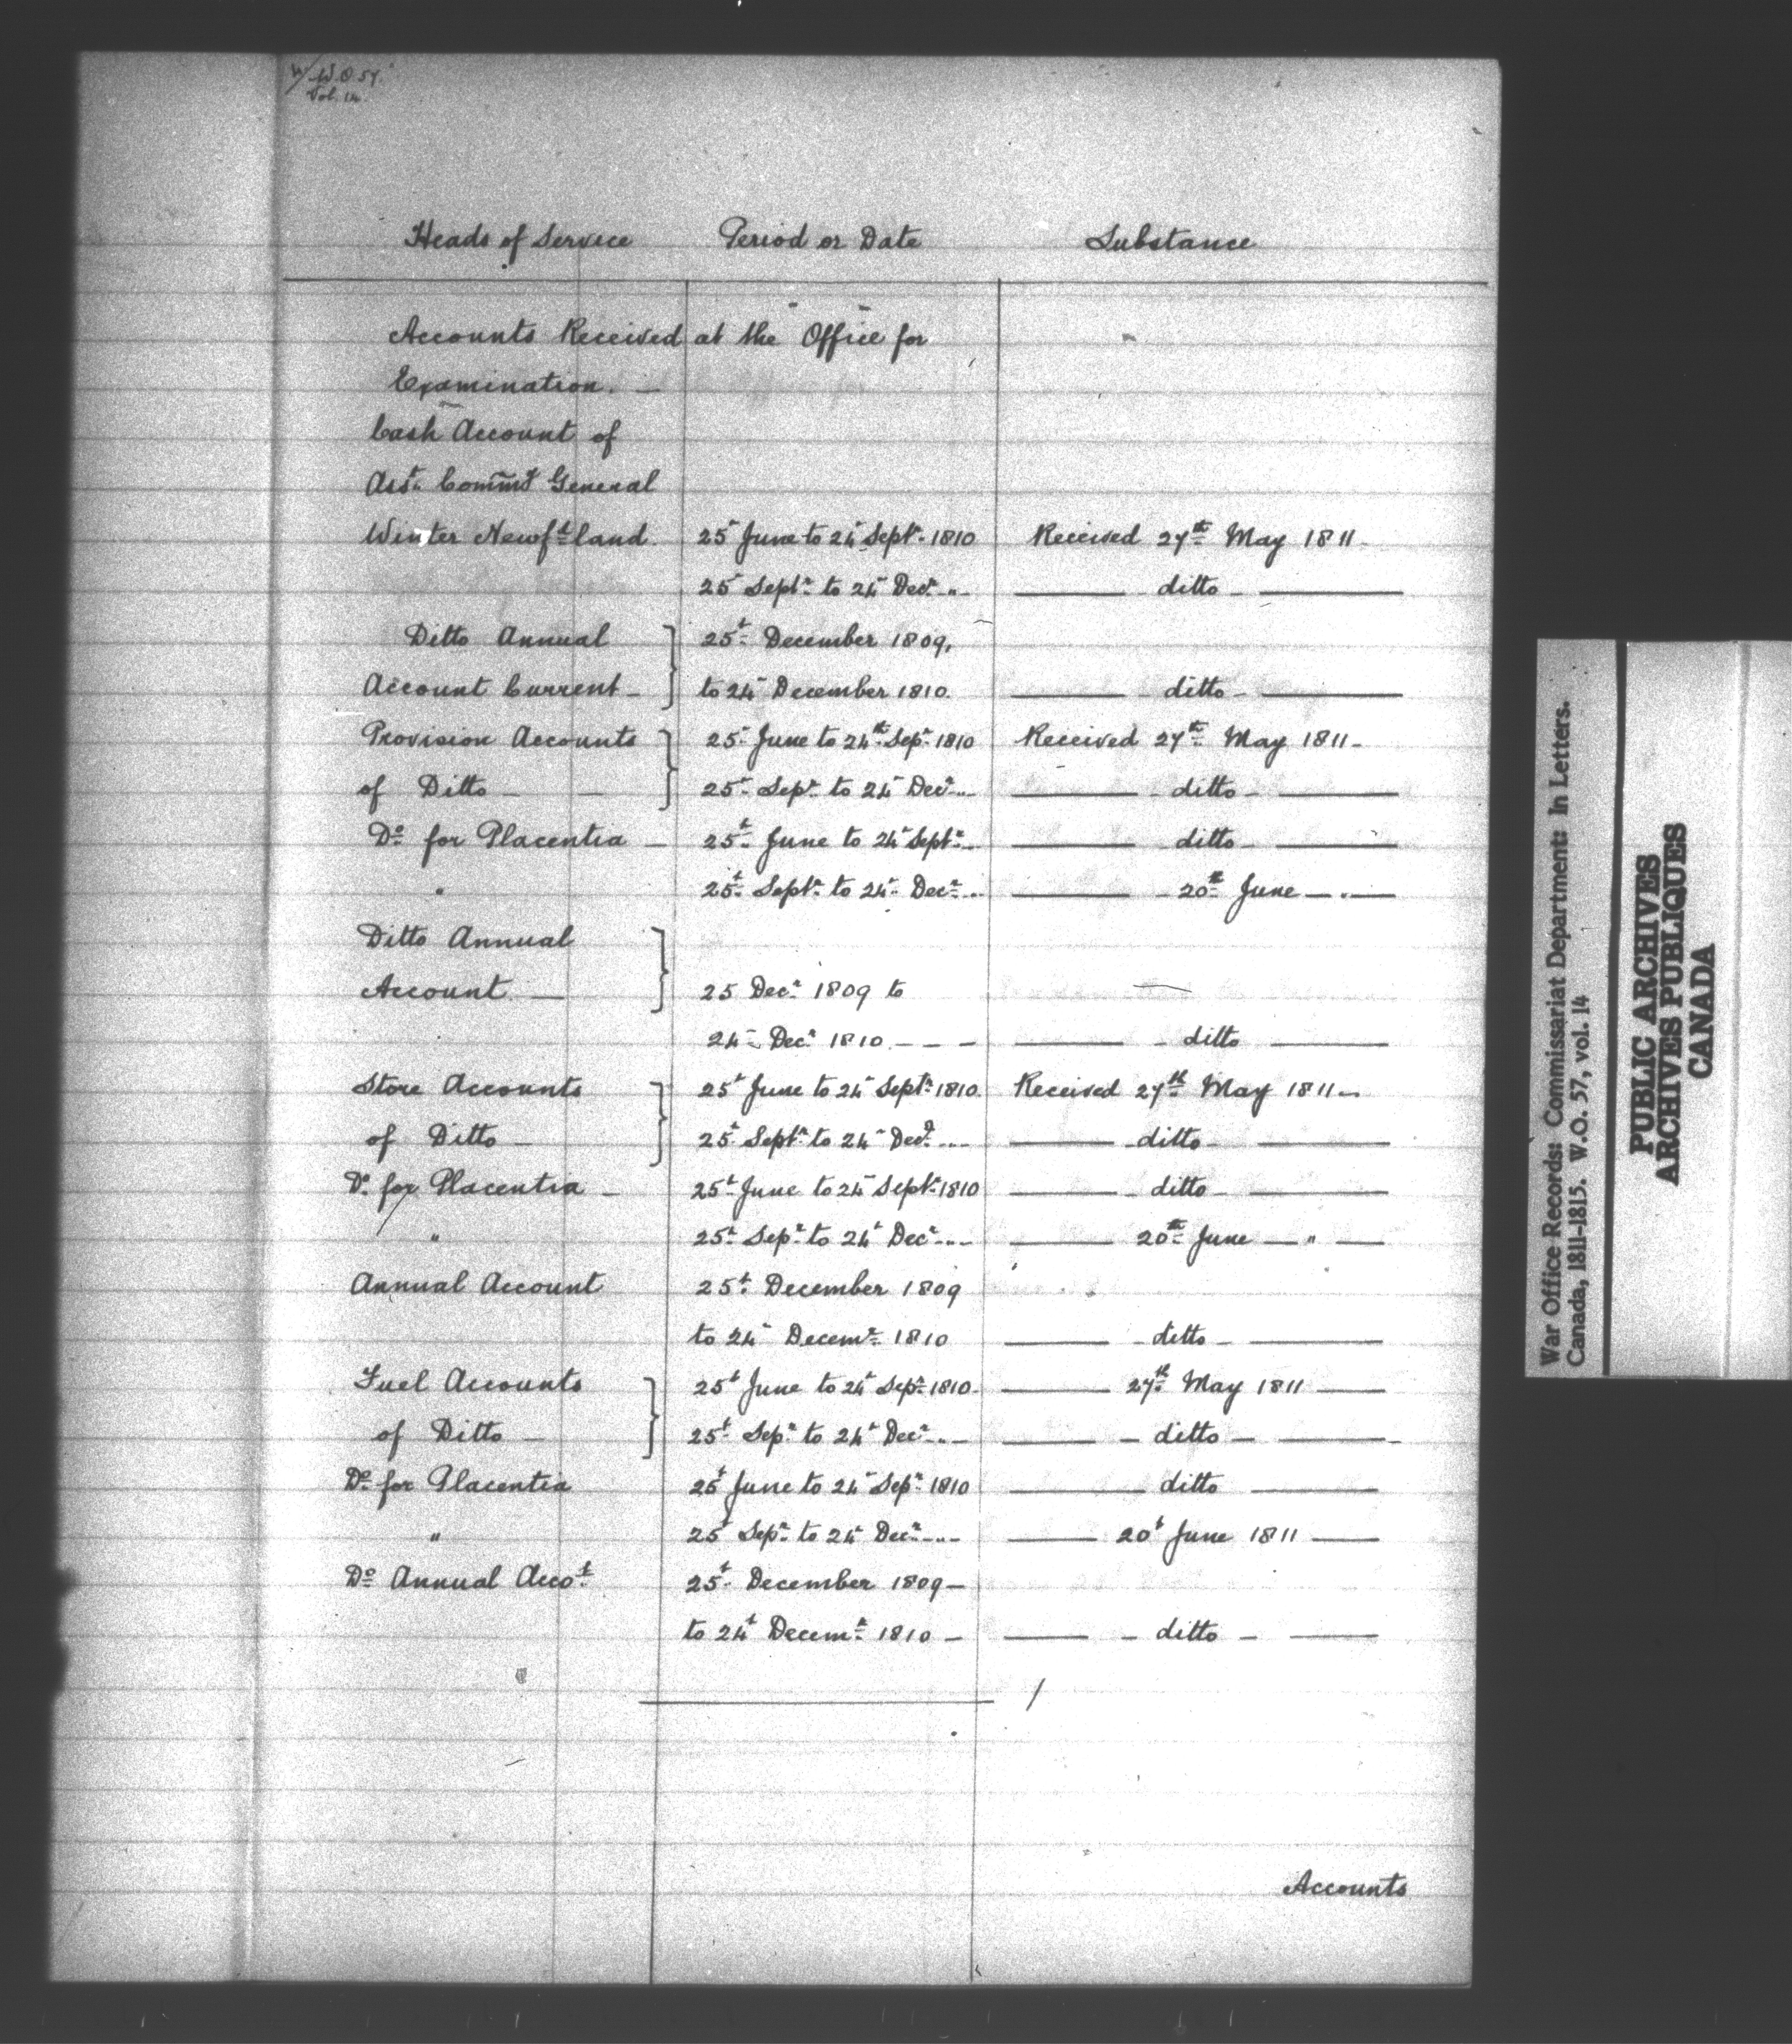 W.O. 57.
Vol. 14.
Heads of Service Period or Date Substance
Accounts Received at the Office for
Examination. —
Cash Account of
Asst. Commy General
Winter Newfdland. 25 June to 24 Sept. 1810 Received 27th May 1811.
25 Septr. to 24 Decr. „ — ditto —
Ditto Annual } 25t. December 1809,
Account Current — } to 24 December 1810. — ditto —
Provision Accounts } 25 June to 24th Sepr. 1810 Received 27th May 1811 —
of Ditto — — } 25t. Sepr. to 24 Decr. „ — ditto —
Do. for Placentia — 25t. June to 24 Septr. „ — ditto —
„ 25t. Septr. to 24. Decr. „ — 20th June — „ —
Ditto Annual }
Account — } 25 Decr. 1809 to
24 Decr. 1810 — — — — ditto —
Store Accounts } 25t June to 24 Septr. 1810. Received 27th May 1811 —
of Ditto — } 25t. Septr. to 24 Decr. „ — ditto —
Do. for Placentia — 25t. June to 24 Septr. 1810 — ditto —
„ 25t. Sepr. to 24t Decr. „ — 20th June — „ —
Annual Account 25t. December 1809
to 24 Decemr. 1810 — ditto —
Fuel Accounts } 25t June to 24t Sepr. 1810. — 27th May 1811 —
of Ditto — } 25t Sepr. to 24t Decr. „ — — ditto — —
Do. for Placentia 25t June to 24 Sepr. 1810 — ditto —
„ 25t Sepr. to 24 Decr. „ — 20t June 1811 —
Do. Annual Accot. 25t. December 1809 —
to 24t Decemr. 1810 — — ditto — —
Accounts
War Office Records: Commissariat Department: In Letters.
Canada, 1811-1815. W.O. 57, vol. 14
PUBLIC ARCHIVES
ARCHIVES PUBLIQUES
CANADA